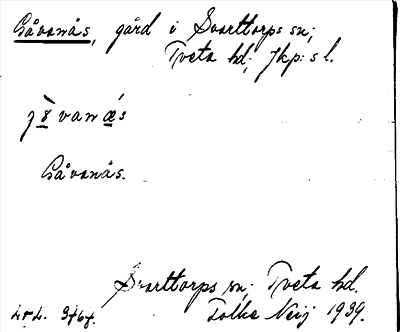 Gåvanås, gård i Svarttorps sn;
Tveta hd; Jkp:s l.
Gåvanås.
Svarttorps sn; Tveta hd.
Folke Neij 1939.